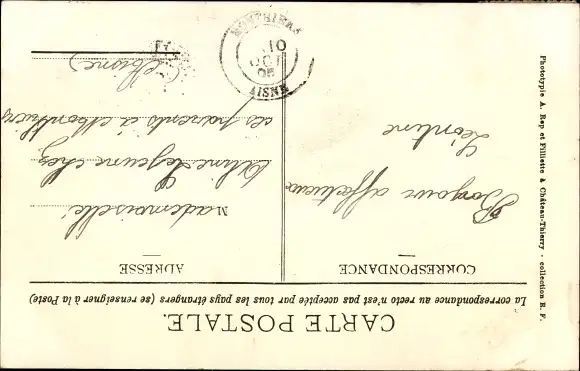 CARTE POSTALE.
La correspondance au recto n'est pas acceptée par tous les pays étrangers (se renseigner à la Poste)
CORRESPONDANCE
ADRESSE
Bonjour affectueux
Léontine
Mademoiselle
Aline Lejeune chez
ses parents à Monthiers
(Aisne)
MONTHIERS
10
OCT
05
AISNE
Phototypie A. Rep et Filliette à Château-Thierry - collection R. F.